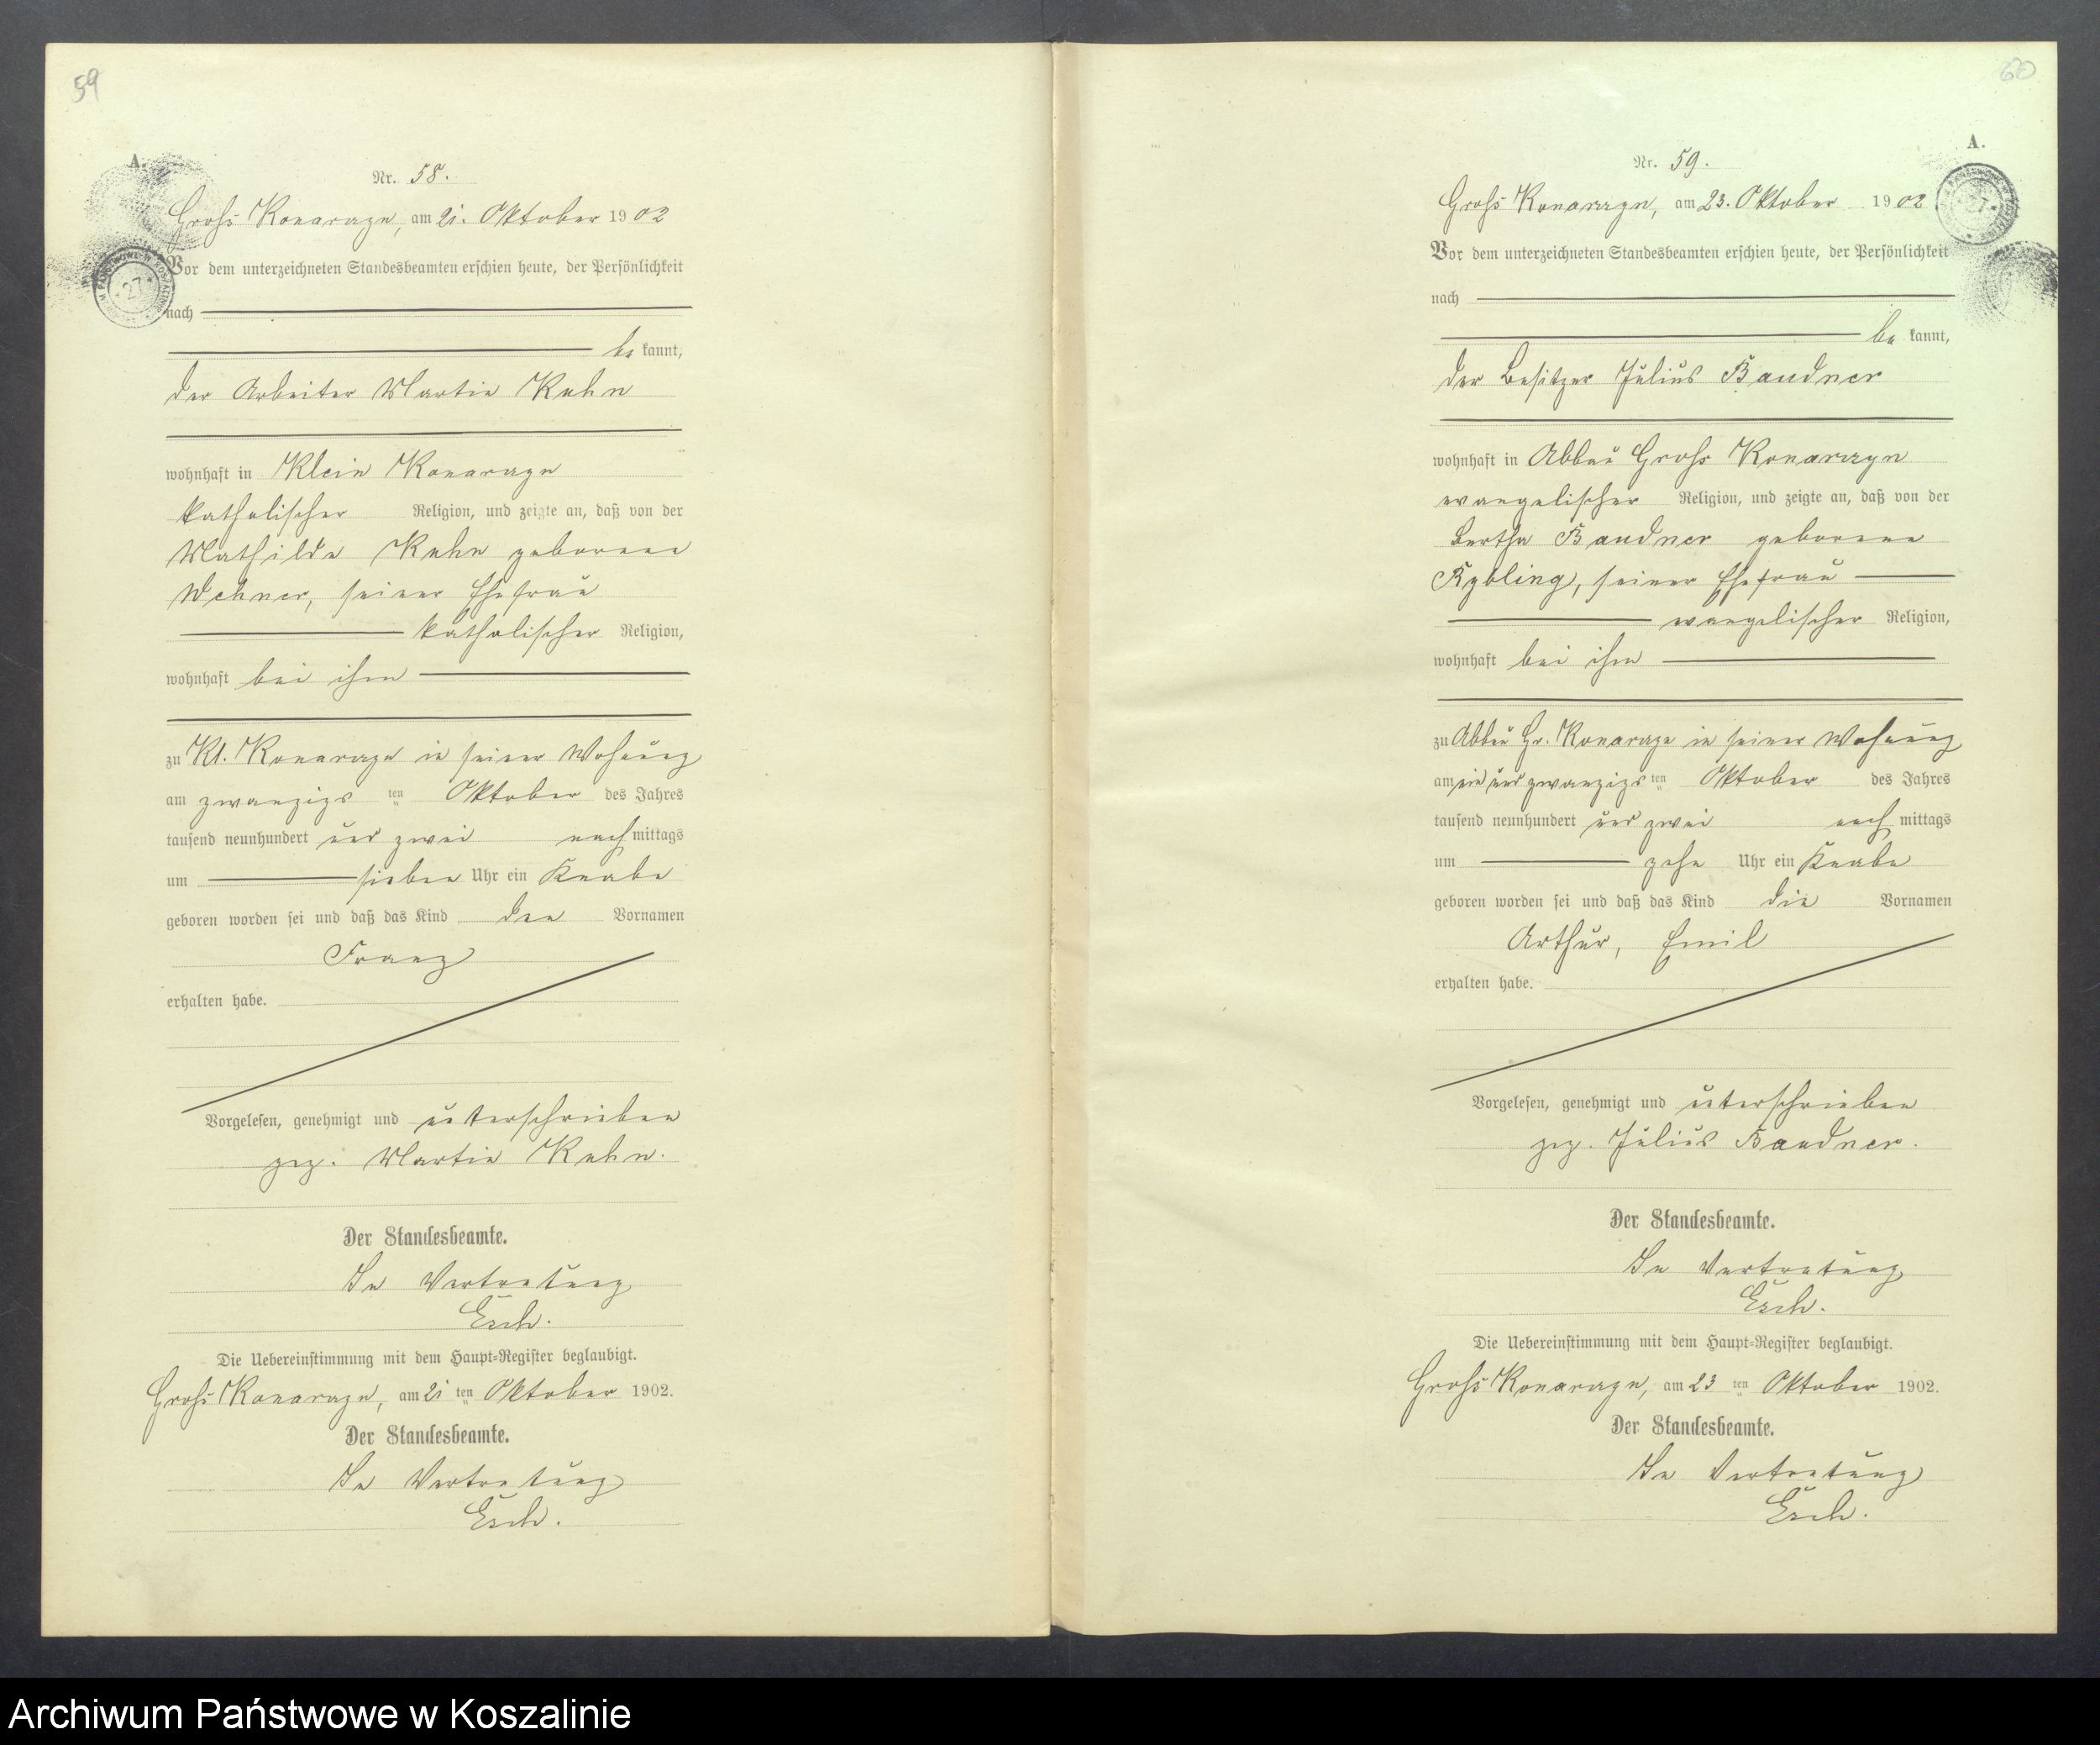 59
A.
Nr. 58.
Groß Konarzyn, am 21. Oktober 1902
Vor dem unterzeichneten Standesbeamten erschien heute, der Persönlichkeit
nach
be kannt,
der Arbeiter Martin Kuhn
wohnhaft in Klein Konarzyn
katholischer Religion, und zeigte an, daß von der
Mathilde Kuhn geborene
Wehner, seiner Ehefrau
katholischer Religion,
wohnhaft bei ihm
zu Kl. Konarzyn in seiner Wohnung
am zwanzigs ten Oktober des Jahres
tausend neunhundert und zwei nach mittags
um sieben Uhr ein Knabe
geboren worden sei und daß das Kind den Vornamen
Franz
erhalten habe.
Vorgelesen, genehmigt und unterschrieben
gez. Martin Kuhn.
Der Standesbeamte.
In Vertretung
Esch.
Die Uebereinstimmung mit dem Haupt=Register beglaubigt.
Groß Konarzyn, am 21 ten Oktober 1902.
Der Standesbeamte.
In Vertretung
Esch.
60
A.
Nr. 59.
Groß Konarzyn, am 23. Oktober 1902
27
Vor dem unterzeichneten Standesbeamten erschien heute, der Persönlichkeit
nach
be kannt,
der Besitzer Julius Bandner
wohnhaft in Abbau Groß Konarzyn
evangelischer Religion, und zeigte an, daß von der
Bertha Bandner geborene
seiner Ehefrau
evangelischer Religion,
wohnhaft bei ihm
zu Abbau Gr. Konarzyn in seiner Wohnung
am ein und zwanzigs ten Oktober des Jahres
tausend neunhundert und zwei nach mittags
um zehn Uhr ein Knabe
geboren worden sei und daß das Kind die Vornamen
Arthur, Emil
erhalten habe.
Vorgelesen, genehmigt und unterschrieben
gez. Julius Bandner.
Der Standesbeamte.
In Vertretung
Esch.
Die Uebereinstimmung mit dem Haupt=Register beglaubigt.
Groß Konarzyn, am 23 ten Oktober 1902.
Der Standesbeamte.
In Vertretung
Esch.
Archiwum Państwowe w Koszalinie